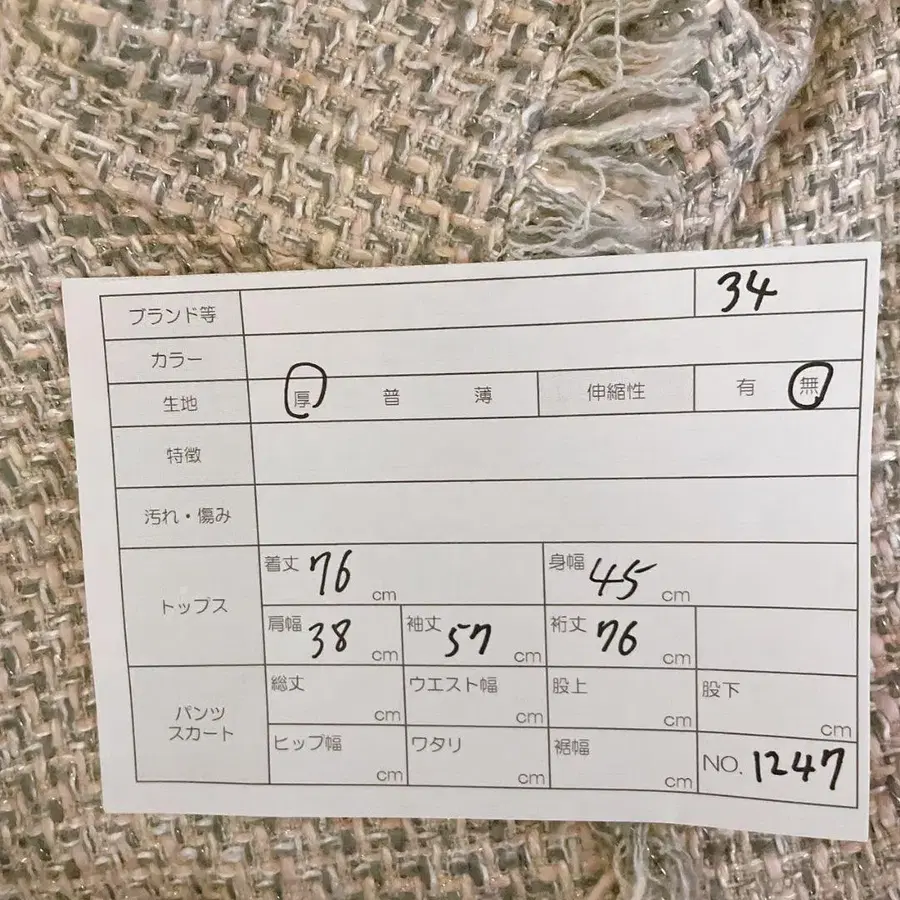 ブランド等 34
カラー
生地 厚 普 薄 伸縮性 有 無
特徴
汚れ・傷み
トップス
着丈 76 cm 身幅 45 cm
肩幅 38 cm 袖丈 57 cm 裄丈 76 cm
パンツ
スカート
総丈 cm ウエスト幅 cm 股上 cm 股下 cm
ヒップ幅 cm ワタリ cm 裾幅 cm NO. 1247